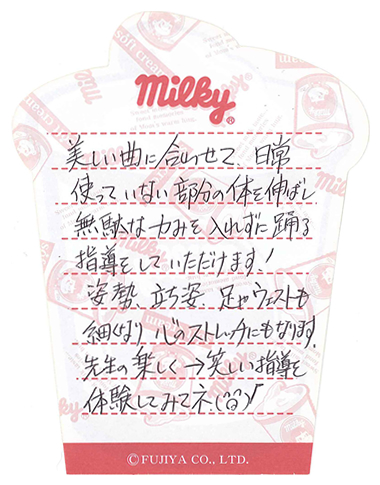 milky®
美しい曲に合わせて、日常
使っていない部分の体を伸ばし
無駄な力みを入れずに踊る
指導をしていただけます!
姿勢、立ち姿、足やウェストも
細くなり 心のストレッチにもなります。
先生の楽しく→美しい指導を
体験してみてネ(^o^)!
©FUJIYA CO., LTD.